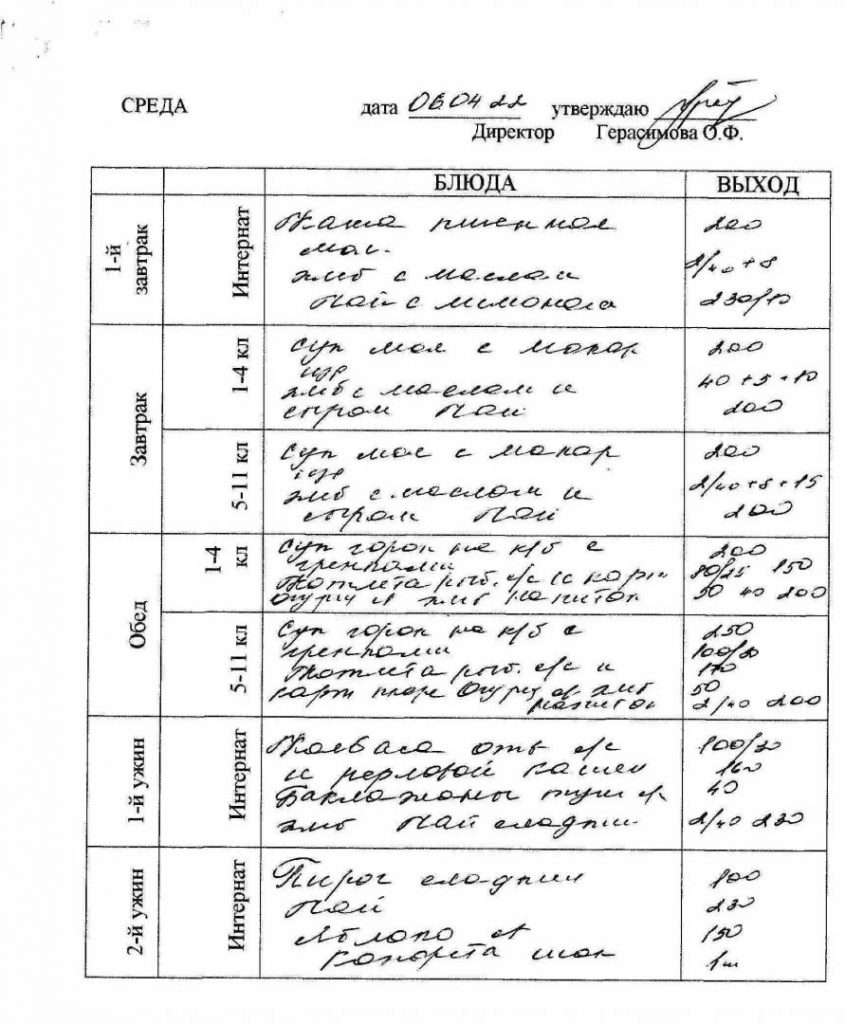 СРЕДА дата 06.04 22 утверждаю
Директор Герасимова О.Ф.
БЛЮДА ВЫХОД
1-й завтрак Интернат
Каша пшенная 200
мол.
хлеб с маслом 2/40+8
Чай с лимоном 230/10
Завтрак
1-4 кл
суп мол с макар 200
изд
хлеб с маслом и 40+5+10
сыром Чай 200
5-11 кл
суп мол с макар 200
изд
хлеб с маслом и 2/40+8+15
сыром Чай 200
Обед
1-4 кл
суп горох на к/б с 200
гренками 80/25 150
Котлета рыб. с/с и карт
огурец хлеб напиток 50 40 200
5-11 кл
суп горох на к/б с 250
гренками 100/30
Котлета рыб. с/с и
карт пюре Огурец хлеб 50
напиток 2/40 200
1-й ужин Интернат
Колбаса отв с/с 100/30
и перловой кашей 160
Баклажаны туш 40
хлеб Чай сладкий 2/40 230
2-й ужин Интернат
Пирог сладкий 100
Чай 230
Яблоко 150
конфета шок 1ш